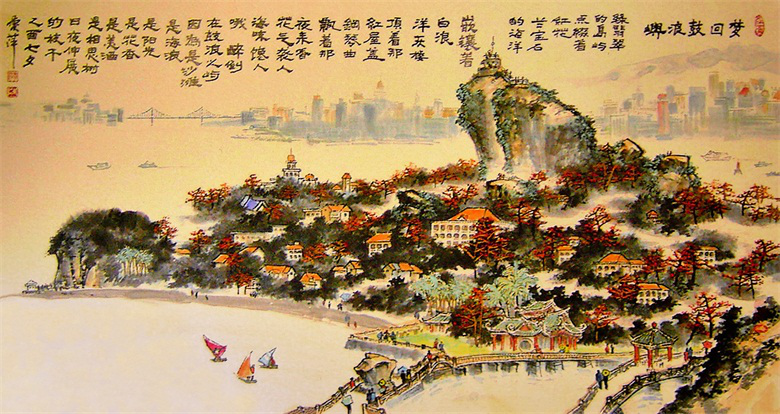 梦回鼓浪嶼
緑翡翠
的島屿
点缀着
红花
兰宝石
的海洋
嵌镶着
白浪
洋灰楼
顶着那
红屋盖
鋼琴曲
散着那
夜来香
花气袭人
海味馋人
哦 醉倒
在鼓浪屿
因為是沙滩
是海浪
是阳光
是花香
是相思树
日夜伸展
的枝干
乙酉七夕